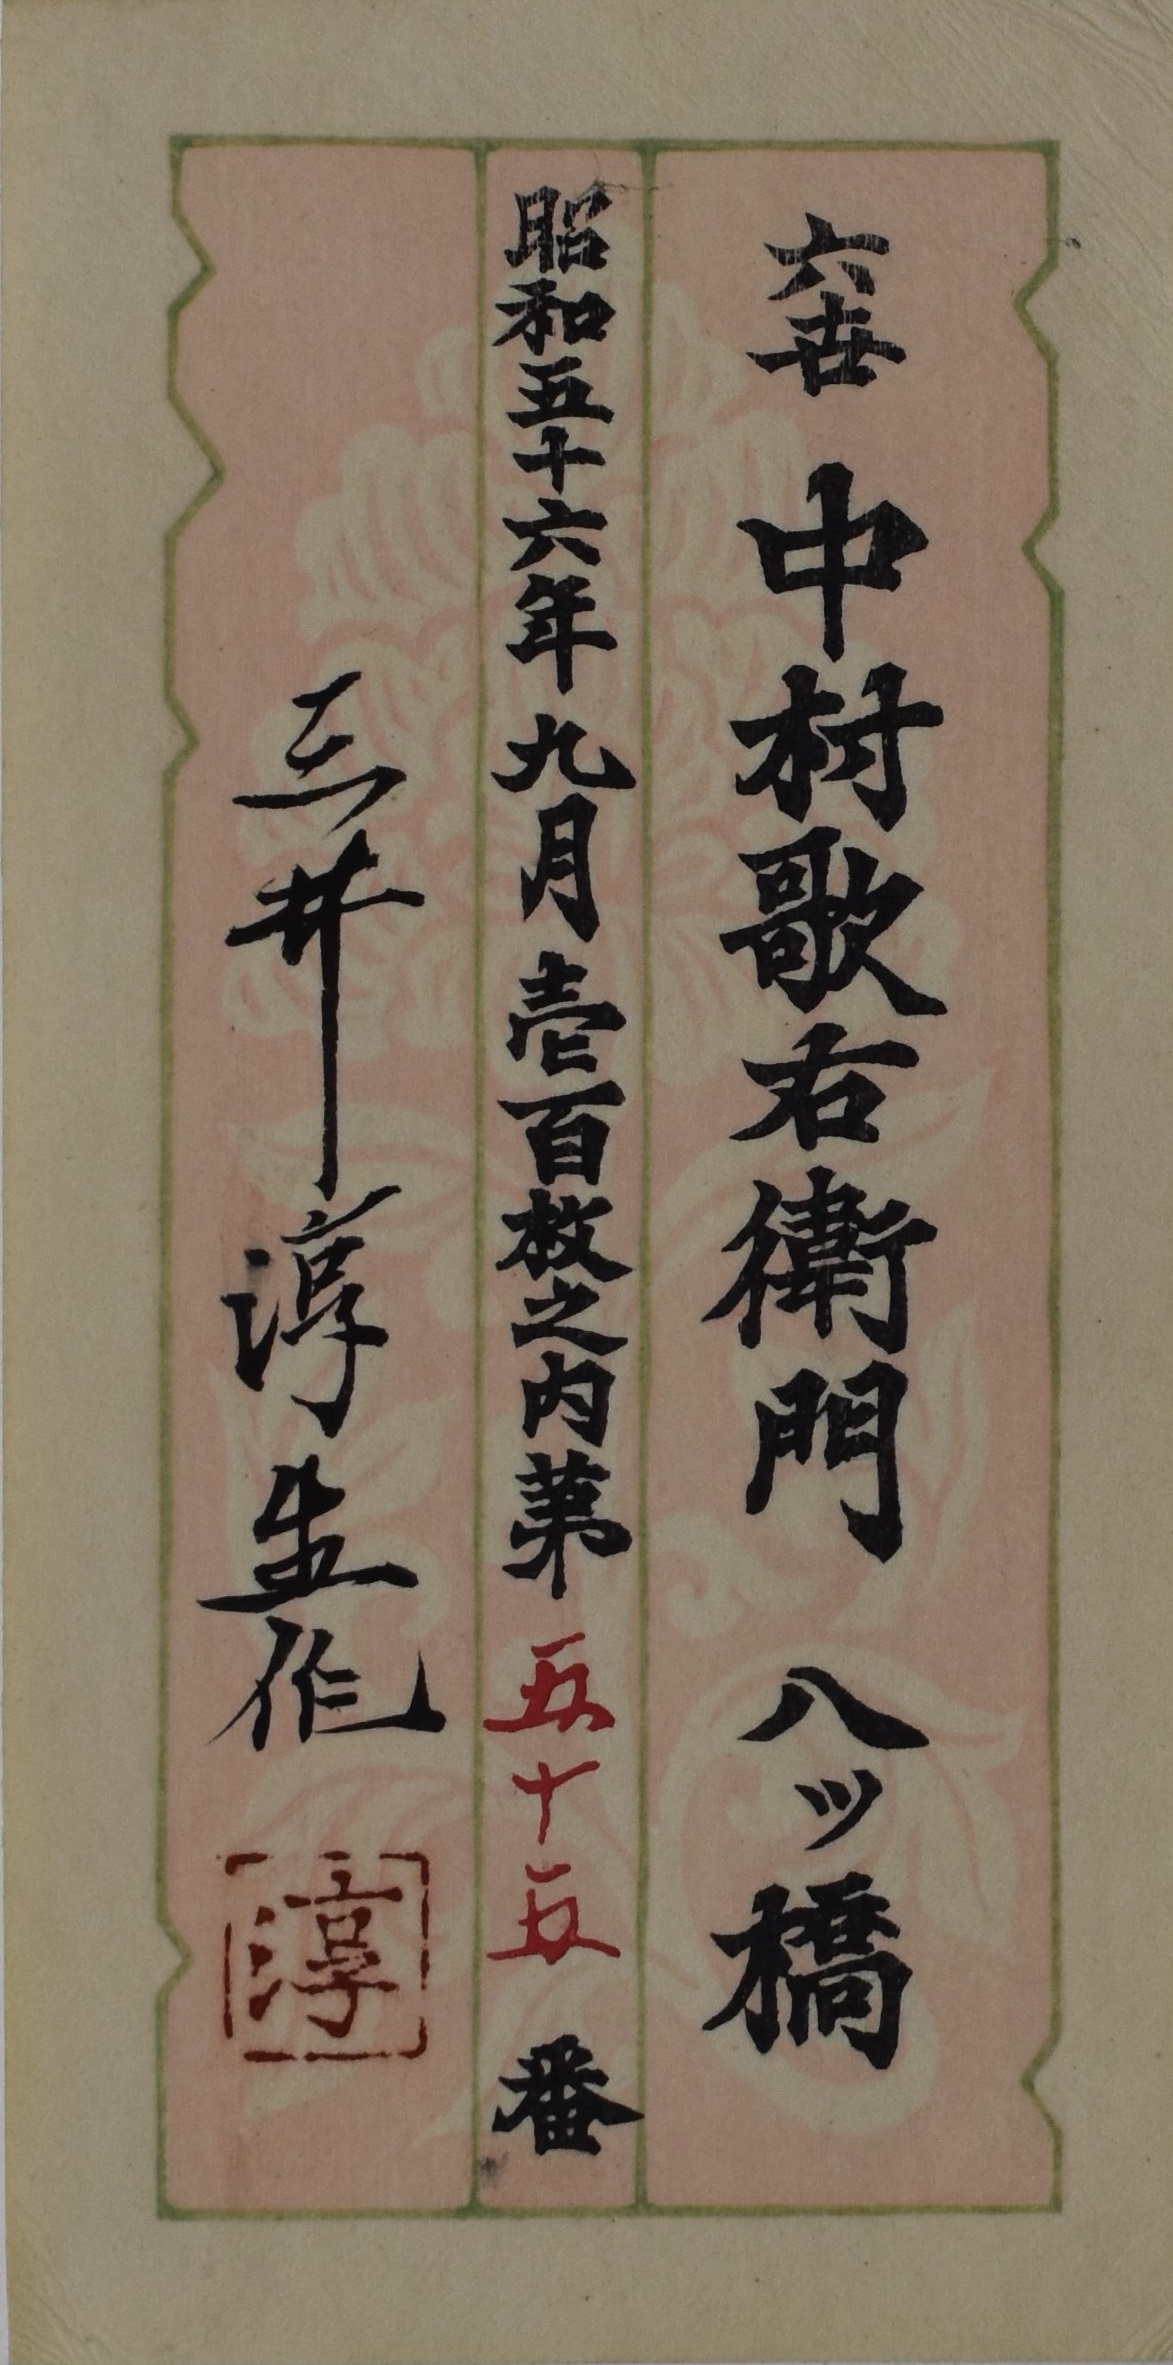 六世 中村歌右衛門 八ッ橋
昭和五十六年九月壱百枚之内第五十五番
三井淳生作
淳